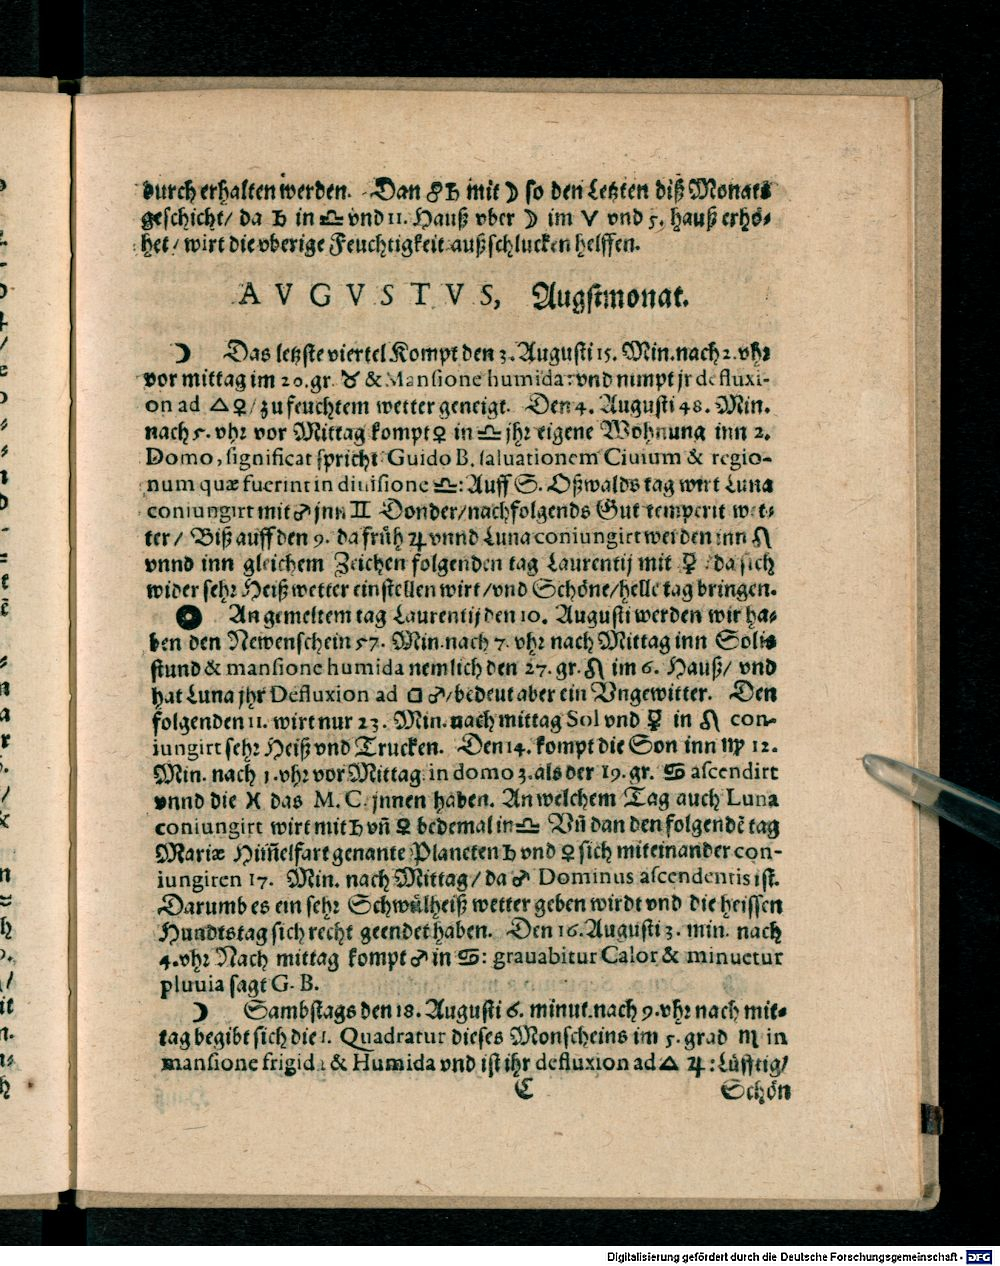 durch erhalten werden. Dan ☍ ♄ mit ☽ so den Letzten diß Monats
geschicht/ da ♄ in ♎ vnd 11. Hauß vber ☽ im ♈ vnd 5. hauß erhö⸗
het/ wirt die vberige Feuchtigkeit außschlucken helffen.
AVGVSTVS, Augstmonat.
☽ Das letzste viertel Kompt den 3. Augusti 15. Min. nach 2. vhr
vor mittag im 20. gr. ♉ & Mansione humida: vnd nimpt jr defluxi-
on ad △ ♀/ zu feuchtem wetter geneigt. Den 4. Augusti 48. Min.
nach 5. vhr vor Mittag kompt ♀ in ♎ jhr eigene Wohnung inn 2.
Domo, significat spricht Guido B. saluationem Ciuium & regio-
num quæ fuerint in diuisione ♎: Auff S. Oßwalds tag wirt Luna
coniungirt mit ♂ jnn ♊ Donder/ nachfolgends Gut temperirt wet⸗
ter/ Biß auff den 9. da früh ♃ vnnd Luna coniungirt werden inn ♌
vnnd inn gleichem Zeichen folgenden tag Laurentij mit ☿: da sich
wider sehr Heiß wetter einstellen wirt/ vnd Schöne/ helle tag bringen.
An gemeltem tag Laurentij den 10. Augusti werden wir ha⸗
ben den Newenschein 57. Min. nach 7. vhr nach Mittag inn Solis
stund & mansione humida nemlich den 27. gr. ♌ im 6. Hauß/ vnd
hat Luna jhr Defluxion ad □ ♂/ bedeut aber ein Vngewitter. Den
folgenden 11. wirt nur 23. Min. nach mittag Sol vnd ☿ in ♌ con-
iungirt sehr Heiß vnd Trucken. Den 14. kompt die Son inn ♍ 12.
Min. nach 1. vhr vor Mittag in domo 3. als der 19. gr. ♋ ascendirt
vnnd die ♓ das M. C. jnnen haben. An welchem Tag auch Luna
coniungirt wirt mit ♄ vn̄ ♀ bedemal in ♎ Vn̄ dan den folgendē tag
Mariæ Him̄elfart genante Planeten ♄ vnd ♀ sich miteinander con-
iungiren 17. Min. nach Mittag/ da ♂ Dominus ascendentis ist.
Darumb es ein sehr Schwülheiß wetter geben wirdt vnd die heissen
Hundtstag sich recht geendet haben. Den 16. Augusti 3. min. nach
4. vhr Nach mittag kompt ♂ in ♋: grauabitur Calor & minuetur
pluuia sagt G. B.
☽ Sambstags den 18. Augusti 6. minut. nach 9. vhr nach mit⸗
tag begibt sich die 1. Quadratur dieses Monscheins im 5. grad ♏ in
mansione frigida & Humida vnd ist ihr defluxion ad △ ♃: Lüfftig/
C Schön
Digitalisierung gefördert durch die Deutsche Forschungsgemeinschaft - DFG